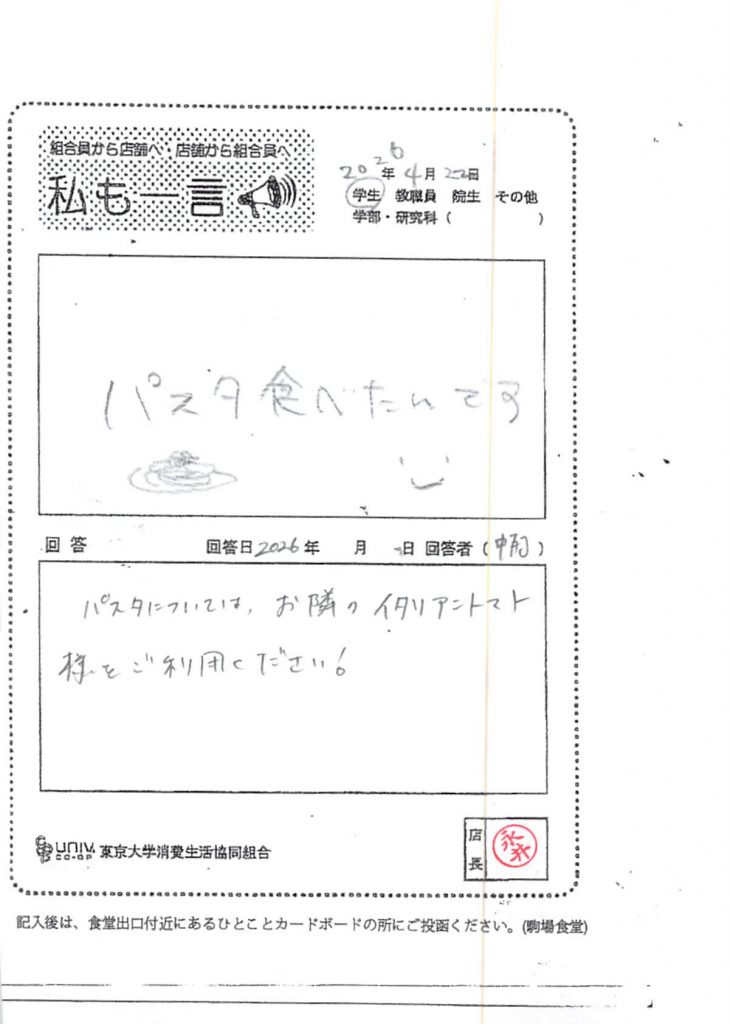 組合員から店舗へ・店舗から組合員へ
私も一言
2026年4月22日
学生 教職員 院生 その他
学部・研究科（　　　　　）
パスタ食べたいんです
回答 回答日2026年　月　日 回答者（　　）
パスタについては、お隣のイタリアントマト
様をご利用ください!
UNIV. CO-OP 東京大学消費生活協同組合
店長 永井
記入後は、食堂出口付近にあるひとことカードボードの所にご投函ください。(駒場食堂)